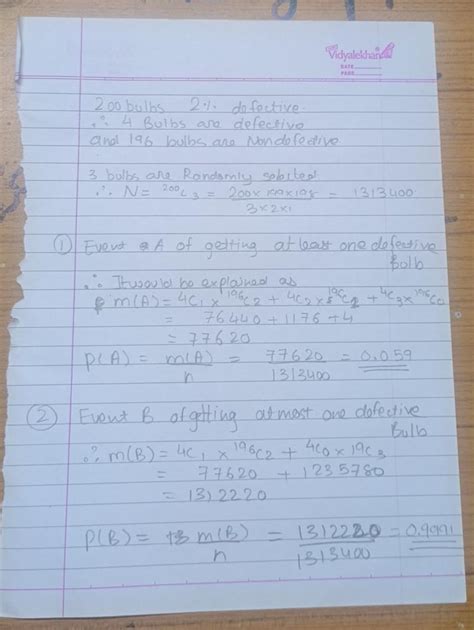 Vidyalekhan
DATE
PAGE
200 bulbs 2% defective
∴ 4 Bulbs are defective
and 196 bulbs are Nondefective
3 bulbs are Randomly selected
∴ N = ²⁰⁰C₃ = 200 x 199 x 198 / 3 x 2 x 1 = 1313400
① Event A of getting atleast one defective
Bulb
∴ It would be explained as
m(A) = ⁴C₁ x ¹⁹⁶C₂ + ⁴C₂ x ¹⁹⁶C₁ + ⁴C₃ x ¹⁹⁶C₀
= 76440 + 1176 + 4
= 77620
P(A) = m(A) / n = 77620 / 1313400 = 0.059
② Event B of getting atmost one defective
Bulb
∴ m(B) = ⁴C₁ x ¹⁹⁶C₂ + ⁴C₀ x ¹⁹C₃
= 77620 + 1235780
= 1312220
P(B) = m(B) / n = 1312220 / 1313400 =